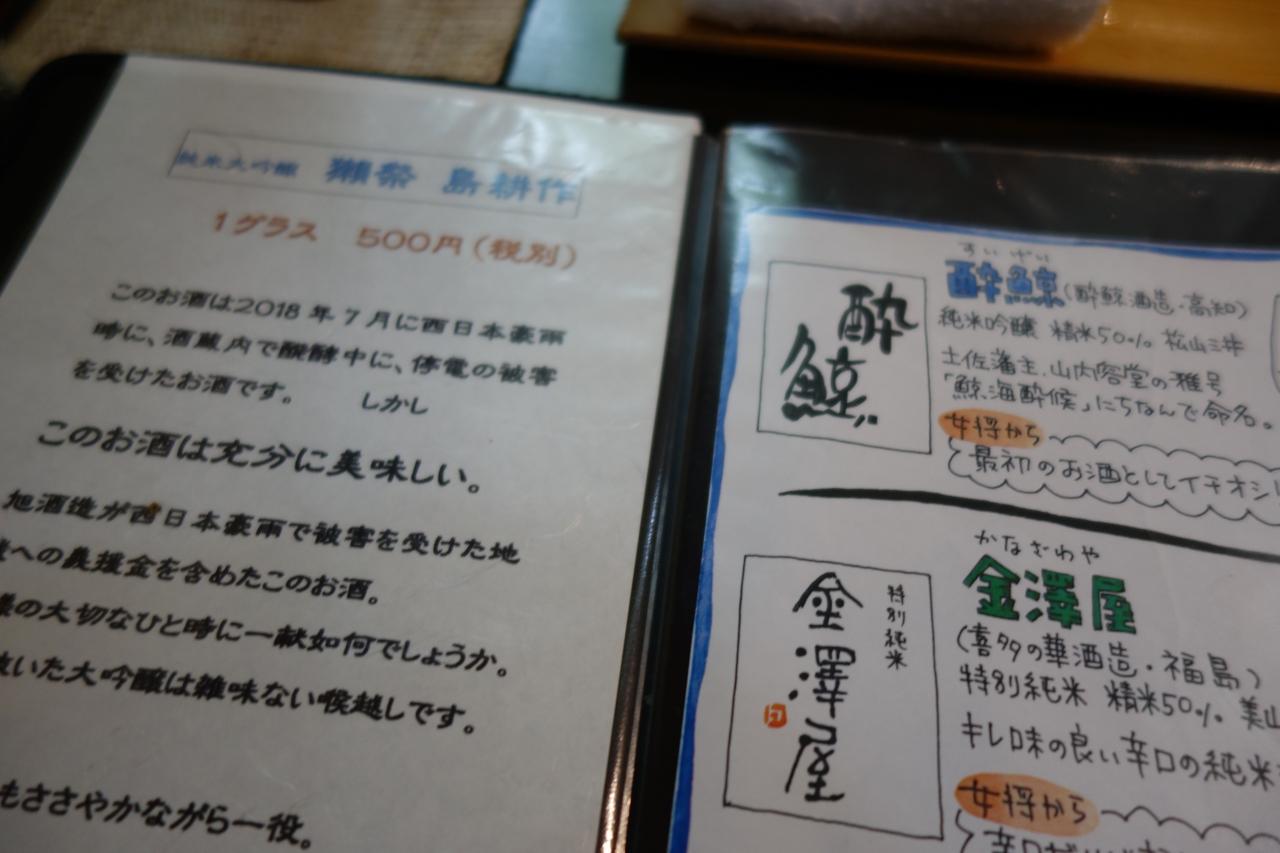 純米大吟醸 獺祭 島耕作
1グラス 500円(税別)
このお酒は2018年7月に西日本豪雨
時に、酒蔵内で醗酵中に、停電の被害
を受けたお酒です。 しかし
このお酒は充分に美味しい。
旭酒造が西日本豪雨で被害を受けた地
への義援金を含めたこのお酒。
様の大切なひと時に一献如何でしょうか。
いた大吟醸は雑味ない喉越しです。
もささやかながら一役。
酔
鯨
すいげい
酔鯨(酔鯨酒造・高知)
純米吟醸 精米50% 松山三井
土佐藩主、山内容堂の雅号
「鯨海酔候」にちなんで命名。
女将から
最初のお酒としてイチオシ
特別純米
金澤屋
かなざわや
金澤屋
(喜多の華酒造・福島)
特別純米 精米50% 美山
キレ味の良い辛口の純米
女将から
辛口